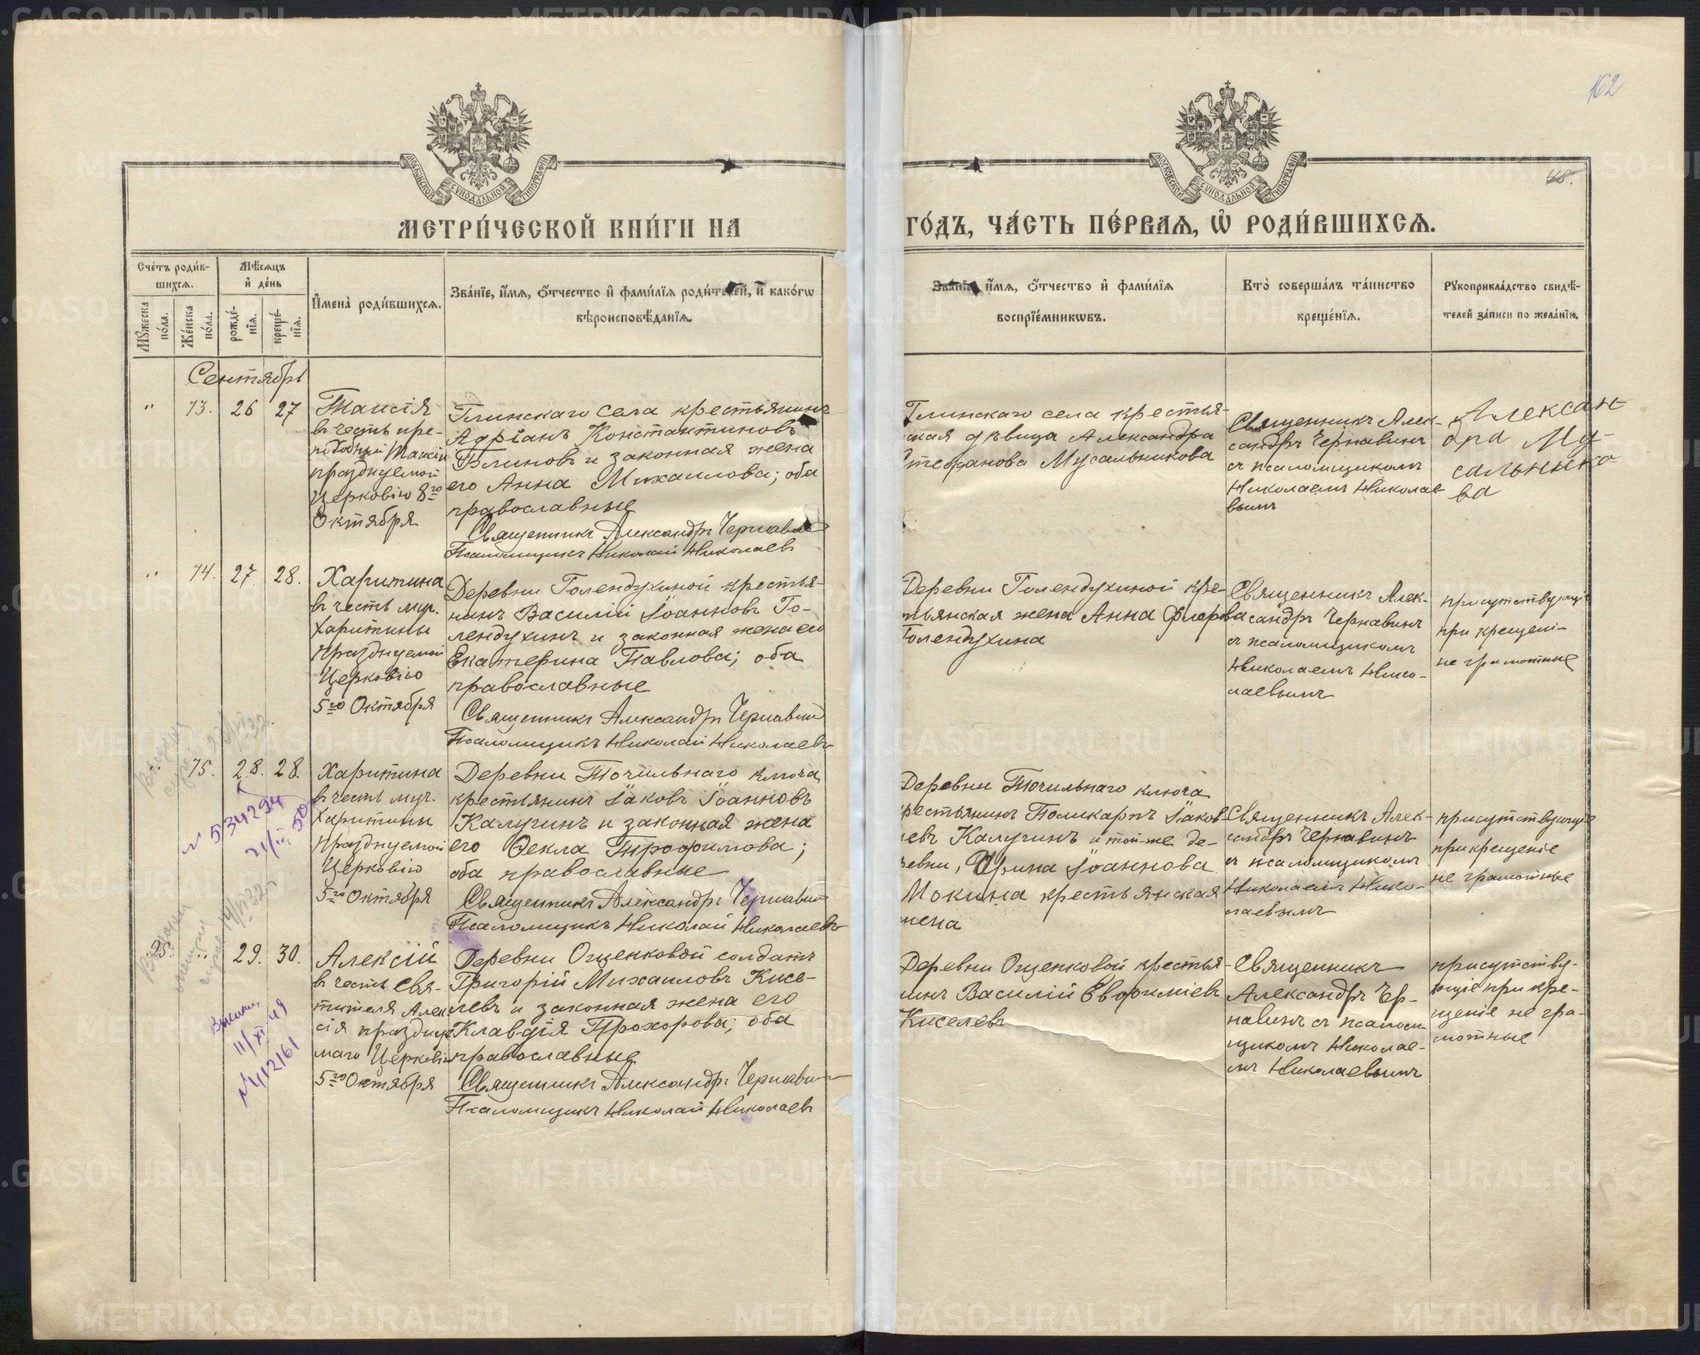 METRIKI.GASO-URAL.RU
162
46.
МОСКОВСКОЙ СѴНОДАЛЬНОЙ ТИПОГРАФІИ
МОСКОВСКОЙ СѴНОДАЛЬНОЙ ТИПОГРАФІИ
МЕТРИ́ЧЕСКОЙ КНИ́ГИ НА
ГО́ДЪ, ЧА́СТЬ ПЕ́РВАѦ, Ѡ҆ РОДИ́ВШИХСѦ.
Сче́тъ роди́в-
шихсѧ.
Мѣ́сѧцъ
и҆ де́нь
Мꙋ́жеска
по́ла.
Же́нска
по́ла.
рожде́-
нїѧ.
креще́-
нїѧ.
И҆мена̀ роди́вшихсѧ.
Зва́нїе, и҆́мѧ, ѻ҆́тчество и҆ фами́лїѧ роди́телей, и҆ како́гѡ
вѣроисповѣ́данїѧ.
Зва́нїе, и҆́мѧ, ѻ҆́тчество и҆ фами́лїѧ
воспрїе́мникѡвъ.
Кто̀ соверша́лъ та́инство
креще́нїѧ.
Рꙋкоприкла́дство свидѣ́-
телей за́писи по жела́нїю.
Сентябрь
" 73. 26 27
Таисія
въ честь пре-
подобной Таисіи
празднуемой
Церковію 8го
Октября
Глинскаго села крестьянинъ
Адріанъ Константиновъ
Блиновъ и законная жена
его Анна Михаилова; оба
православные
Священникъ Александръ Чернавин
Псаломщикъ Николай Николаевъ
Глинскаго села крестья-
ская дѣвица Александра
Стефанова Мусальникова
Священникъ Алек-
сандръ Чернавинъ
съ псаломщикомъ
Николаемъ Николае
вымъ
Алексан
дра Му-
сальнико-
ва
" 74. 27 28.
Харитина
въ честь муч.
Харитины
празднуемой
Церковію
5го Октября
Деревни Голендухиной крестья-
нинъ Василій Іоанновъ Го-
лендухинъ и законная жена его
Екатерина Павлова; оба
православные
Священникъ Александръ Чернавин
Псаломщикъ Николай Николаевъ
Деревни Голендухиной кре-
тьянская жена Анна Флорова
Голендухина
Священникъ Алек-
сандръ Чернавинъ
съ псаломщикомъ
Николаемъ Нико-
лаевымъ
присутствующіе
при крещені-
не грамотные
75. 28. 28.
№ 534294
21/II 50
Харитина
въ честь муч.
Харитины
празднуемой
Церковію
5го Октября
Деревни Точильнаго ключа
крестьянинъ Іаковъ Іоанновъ
Калугинъ и законная жена
его Ѳекла Трофимова;
оба православные
Священникъ Александръ Чернавин
Псаломщикъ Николай Николаевъ
Деревни Точильнаго ключа
рестьянинъ Поликарпъ Іаков-
левъ Калугинъ и той-же де-
ревни, Ирина Іоаннова
Мокина крестьянская
жена
Священникъ Алек-
сандръ Чернавинъ
съ псаломщикомъ
Николаемъ Нико-
лаевымъ
присутствующіе
при крещеніе
не грамотные
" 29. 30.
11/XI 49
№ 412161
Алексій
въ честь Свя-
тителя Алек
сія праздную
маго Церковію
5го Октября
Деревни Ощепковой солдатъ
Григорій Михаиловъ Кисе-
левъ и законная жена его
Клавдія Прохорова; оба
православные
Священникъ Александръ Чернавин
Псаломщикъ Николай Николаевъ
Деревни Ощепковой крестья-
нинъ Василій Евфиміевъ
Киселевъ
Священникъ
Александръ Чер-
навинъ съ псалом-
щикомъ Николае-
мъ Николаевымъ
присутству-
ющіе при кре-
щеніе не гра-
мотные